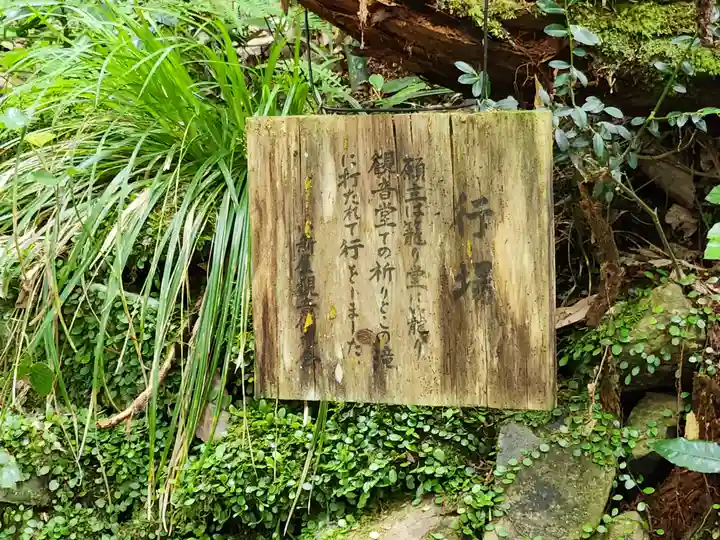 行場
願主は籠り堂に籠り
観音堂での祈りとこの滝
に打たれて行をしました
観音の会